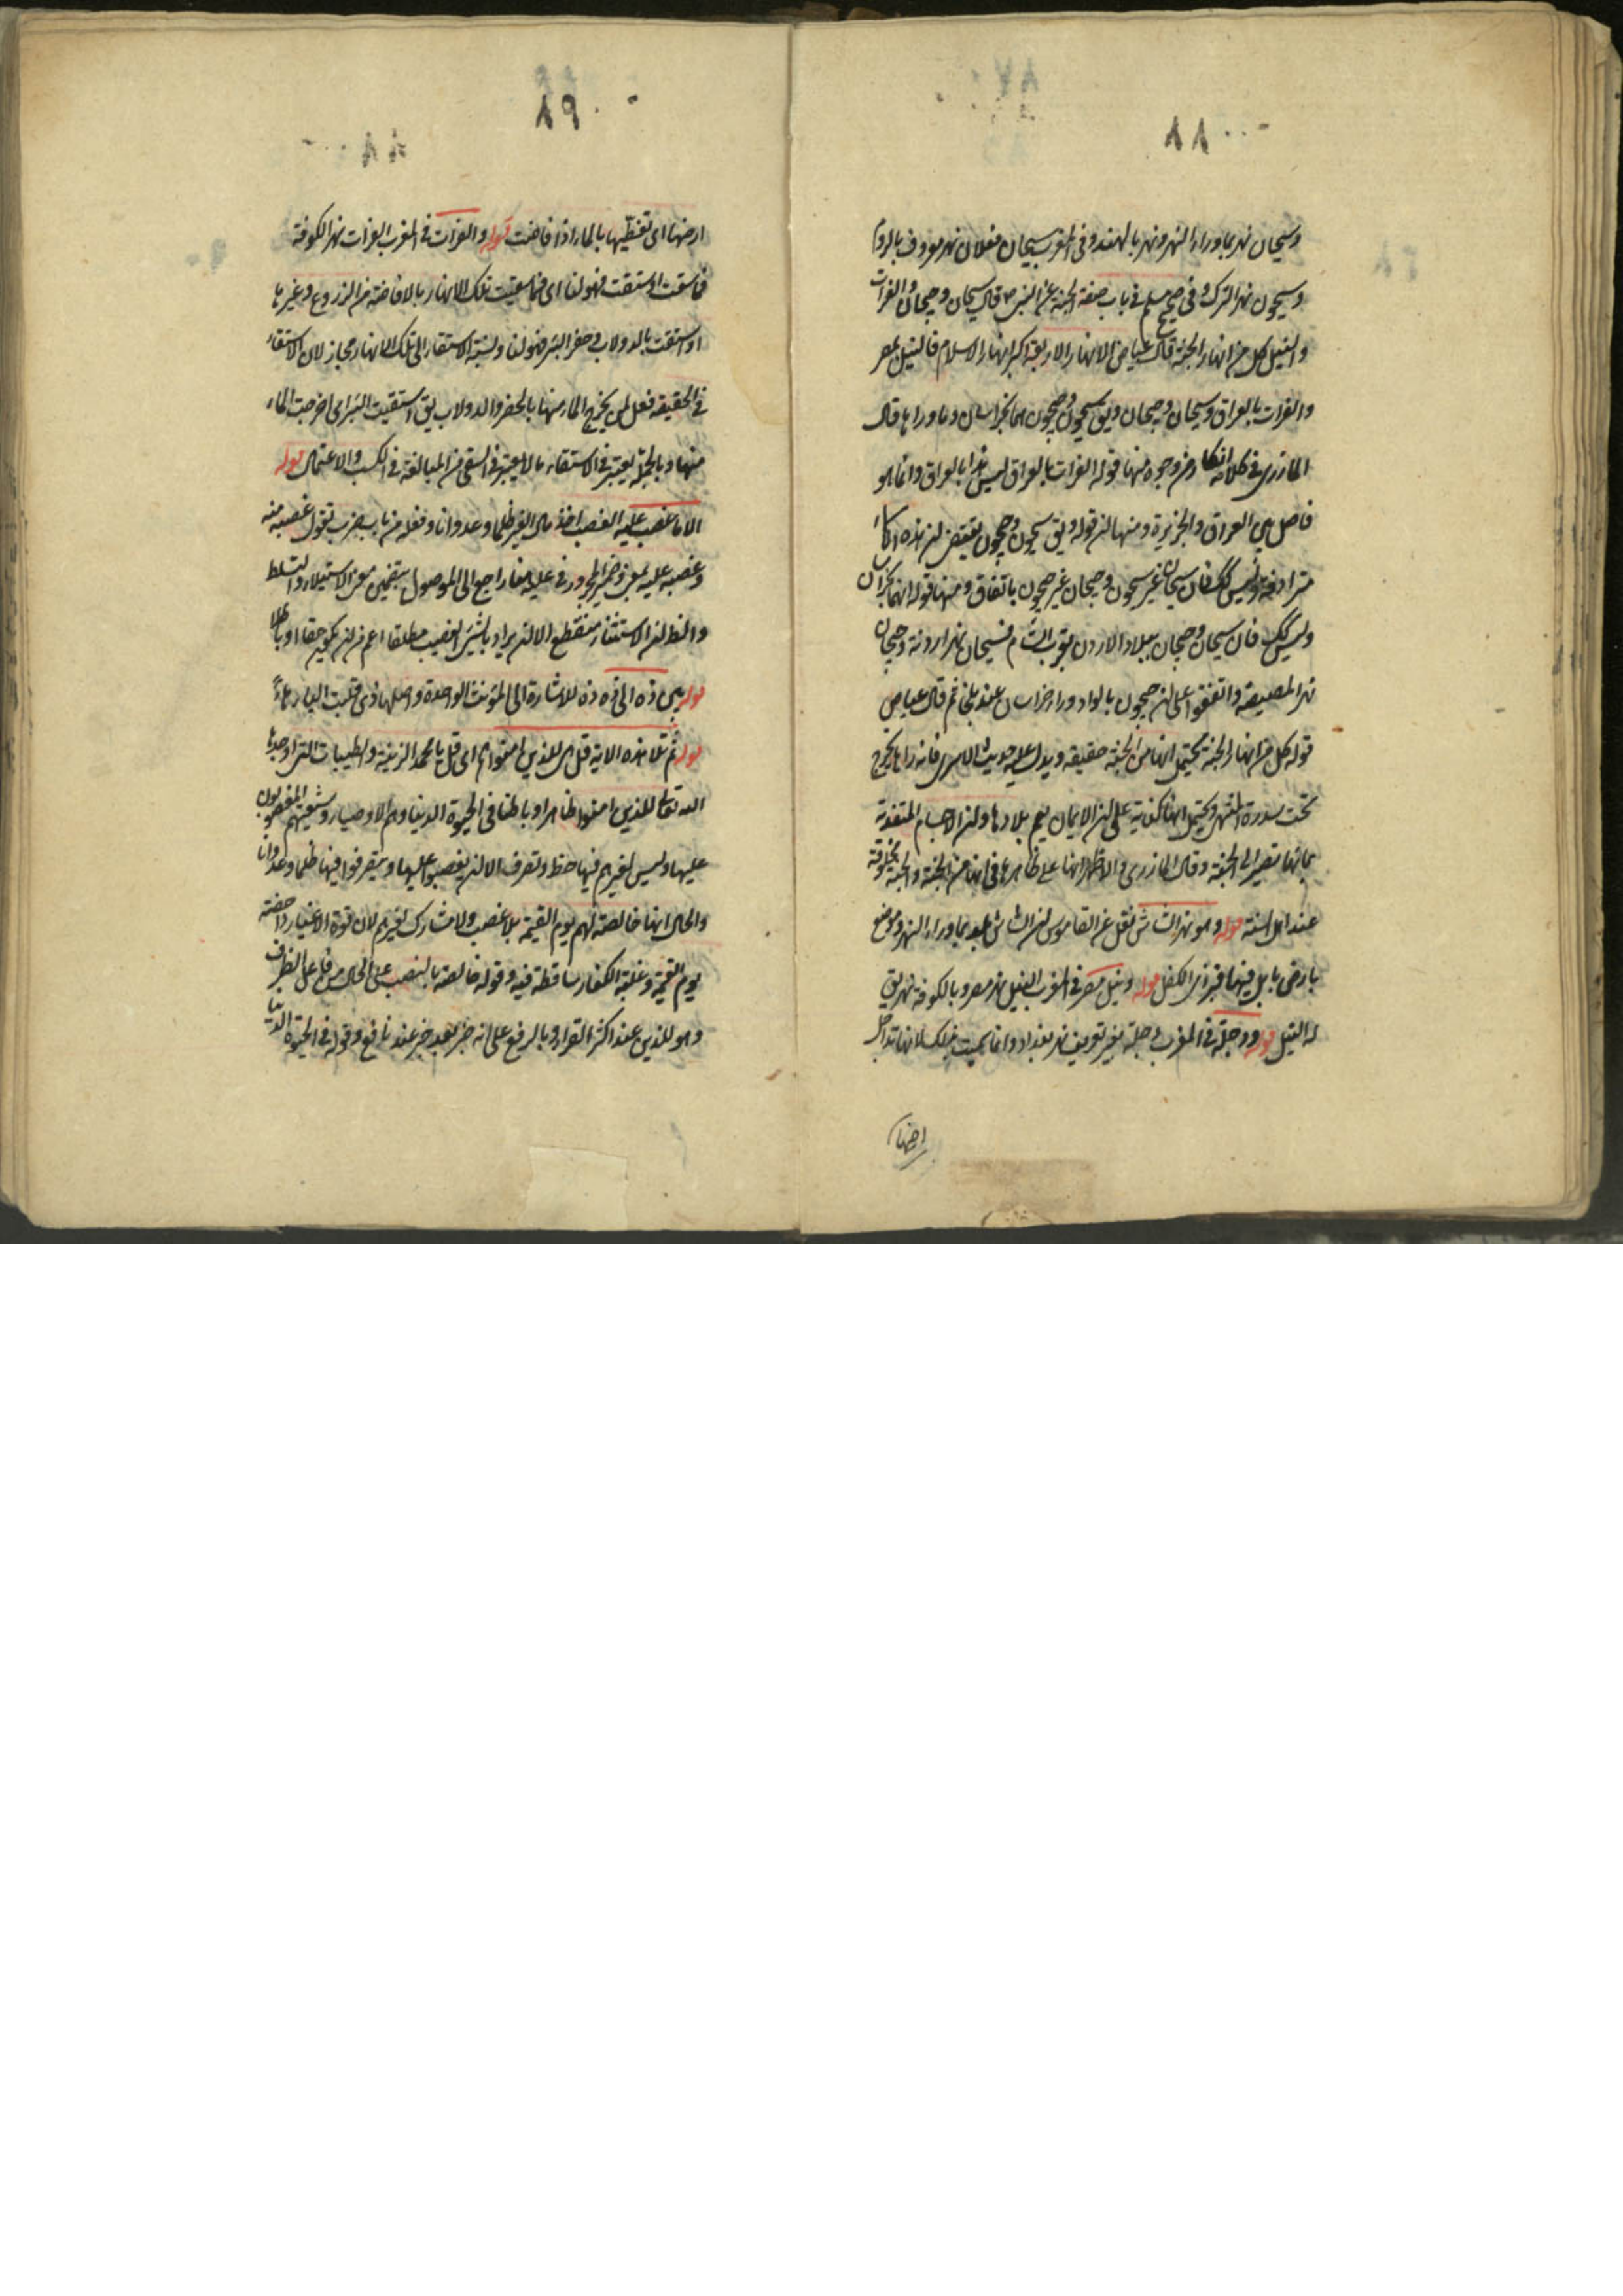 ٨٨
وسيحان نهر بما وراء النهر ونهر بالهند وفى المغرب سيحان فعلان نهر معروف بالروم
وسيحون نهر الترك وفى صحيح مسلم فى باب صفة الجنة عن النبى ص قال سيحان وجيحان والفرات
والنيل كل من انهار الجنة قال عياض الانهار الاربعة اكبر انهار الاسلام فالنيل بمصر
والفرات بالعراق وسيحان وجيحان ويق سيحون وجيحون هما بخراسان وماوراها قال
المازرى فى كلامه انكار من وجوه منها قوله الفرات بالعراق ليس هذا بالعراق وانما هو
فاصل بين العراق والجزيرة ومنها ان قوله ويق سيحون وجيحون يقتضى ان هذه الاسماء
مترادفة وليس كك فان سيحان غير سيحون وجيحان غير جيحون باتفاق ومنها قوله انهما بخراسان
وليس كك فان سيحان وجيحان ببلاد الاردن بقرب الشام فسيحان نهر اردنة وجيحان
نهر المصيصة واتفقوا على ان جيحون بالواو وراء خراسان عند بلخ ثم قال عياض
قوله كل من انهار الجنة يحتمل انها من الجنة حقيقة ويدل عليه حديث الاسرى فانه راها يخرج
تحت سدرة المنتهى ويحتمل انها كناية على ان الايمان يعم بلادها وان الاجسام المتغذية
بمائها تصير الى الجنة وقال المازرى والاظهر انها على ظاهرها فى انها من الجنة والجنة مخلوقة
عند اهل السنة قوله وهو نهر الشاش نقل عن القاموس ان الشاش بلد بما وراء النهر وموضع
بارض بابل فيها قبر ذى الكفل قوله ونيل مصر فى المغرب النيل نهر مصر وبالكوفة نهر يق
له النيل قوله ودجلة فى المغرب دجلة بغير تعريف نهر بغداد وانما سميت بذلك لانها تداجل
ارضها
٨٩
ارضها اى تغطيها بالماء اذا فاضت قوله والفرات فى المغرب الفرات نهر الكوفة
فما سقت او استقت فهو لنا اى فما سقيت تلك الانهار بالافاضة من الزروع وغيرها
او استقت بالدولاب فى حفر البئر فهو لنا ونسبة الاستقاء الى تلك الانهار مجاز لان الاستقاء
فى الحقيقة فعل لمن يخرج الماء منها بالحفر والدولاب يق استقيت البئر اى اخرجت الماء
منها وبالجملة يعتبر فى الاستقاء مالا يعتبر فى السقى من المبالغة فى الكسب والاعتمال قوله
الا ما غصب عليه الغصب اخذ مال الغير ظلما وعدوانا وفعله من باب ضرب تقول غصبه منه
وغصبه عليه بمعنى وضمير المجرور فى عليه هنا راجع الى الموصول بتضمين معنى الاستيلاء والتسلط
والظ ان الاستثناء منقطع الا ان يراد بالشئ النصيب مطلقا اعم من ان يكون حقا او باطلا
قوله بين ذه الى ذه ذه للاشارة الى المؤنث الواحدة واصلها ذى قلبت الياء هاءً
قوله ثم تلا هذه الاية قل هى للذين امنوا هم اى قل يا محمد الزينة والطيبات التى اوجدها
الله تعالى للذين امنوا ظاهرا وباطنا فى الحيوة الدنيا وهم الاوصياء وشيعتهم المغصوبون
عليها وليس لغيرهم فيها حظ وتصرف الا ان يغصبوا عليها ويتصرفوا فيها ظلما وعدوانا
والحال انها خالصة لهم يوم القيمة بلا غصب ولا مشارك لغيرهم لان قوة الاغيار داحضة
يوم القيمة وغلبة الكفار ساقطة فيه وقوله خالصة بالنصب على الحال من فاعل الظرف
وهو للذين عند اكثر القراء وبالرفع على انه خبر بعد خبر عند نافع وقوله فى الحيوة الدنيا